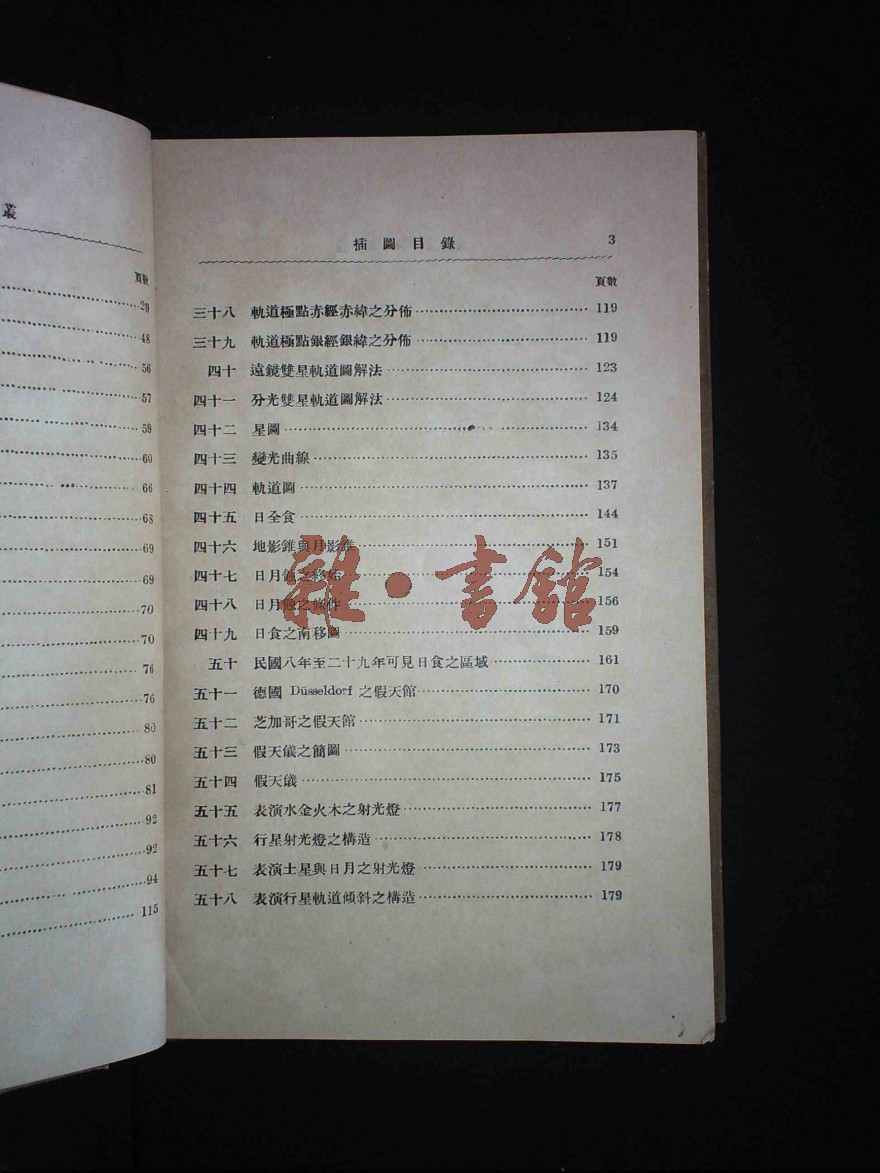 叢
頁數
29
48
56
57
59
60
66
68
69
69
70
70
76
76
80
80
81
92
92
94
115
插圖目錄 3
頁數
三十八 軌道極點赤經赤緯之分佈 119
三十九 軌道極點銀經銀緯之分佈 119
四十 遠鏡雙星軌道圖解法 123
四十一 分光雙星軌道圖解法 124
四十二 星圖 134
四十三 變光曲線 135
四十四 軌道圖 137
四十五 日全食 144
四十六 地影錐與月影錐 151
四十七 日月蝕之終始 154
四十八 日月蝕之條件 156
四十九 日食之南移圖 159
五十 民國八年至二十九年可見日食之區域 161
五十一 德國 Düsseldorf 之假天館 170
五十二 芝加哥之假天館 171
五十三 假天儀之簡圖 173
五十四 假天儀 175
五十五 表演水金火木之射光燈 177
五十六 行星射光燈之構造 178
五十七 表演土星與日月之射光燈 179
五十八 表演行星軌道傾斜之構造 179
雜·書館